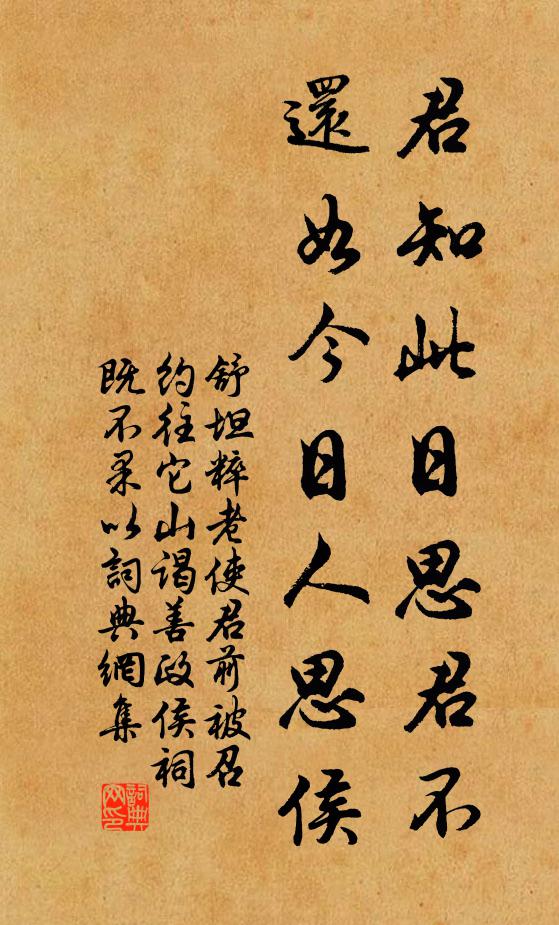 君知此日思君不
還如今日人思侯
舒坦粹老使君前被召
約往它山謁善政侯祠
既不果以詞典網集
詞典网印